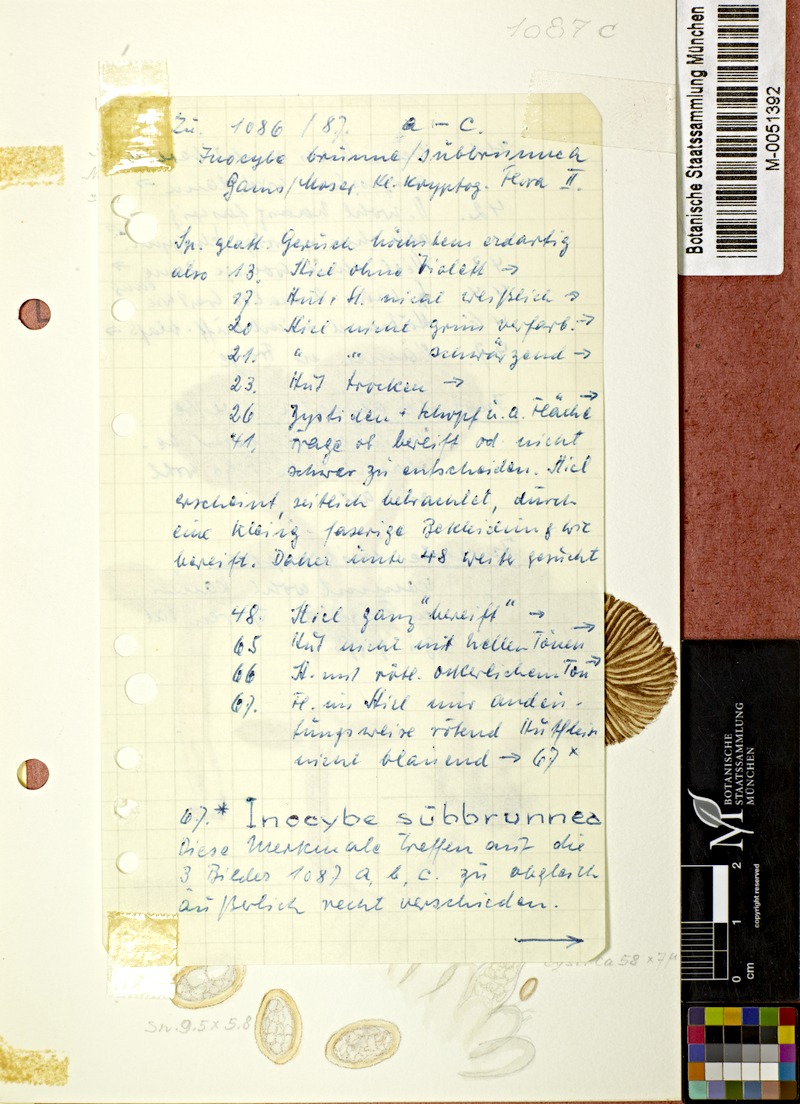 1087 c
Zu. 1086 / 87. a – c.
Inocybe brunnea/subbrunnea
Gams/Moser, Kl. Kryptog. Flora II.
Sp. glatt. Geruch höchstens erdartig
also 13. Stiel ohne Violett →
17. Hut + St. nicht weißlich →
20 Stiel nicht grün verfärb. →
21. " " schwärzend →
23. Hut trocken →
26 Zystiden + schopf u. a. Fläche →
41. Frage ob bereift od. nicht
schwer zu entscheiden. Stiel
erscheint, seitlich betrachtet, durch
eine kleiig faserige Bekleidung wie
bereift. Daher unter 48 weiter gesucht
48. Stiel ganz "bereift" →
65 Hut nicht mit hellen Tönen →
66 St. mit rötl. ockerlichem Ton →
67. Fl. im Stiel nur anden-
tungsweise rötend Hutfleisch
nicht blauend → 67 *
67. * Inocybe subbrunnea
Diese Merkmale treffen auf die
3 Bilder 1087 a, b, c. zu obgleich
äußerlich recht verschieden.
→
Sp. 9.5 x 5.8
Cyst. ca 58 x 7 µ
Botanische Staatssammlung München
M-0051392
BOTANISCHE
STAATSSAMMLUNG
MÜNCHEN
0 1 2
cm
copyright reserved